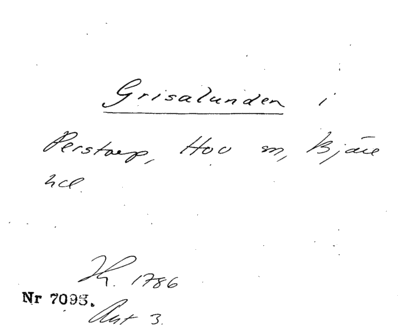 Grisalunden i
Perstorp, Hov sn, Bjäre
hd
Sk. 1786
Nr 7093.
Akt 3.